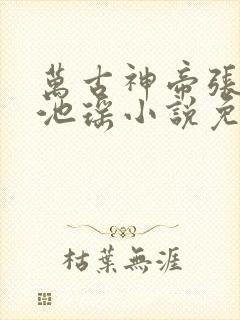 萬古神帝張
池瑤小說免
枯葉無涯